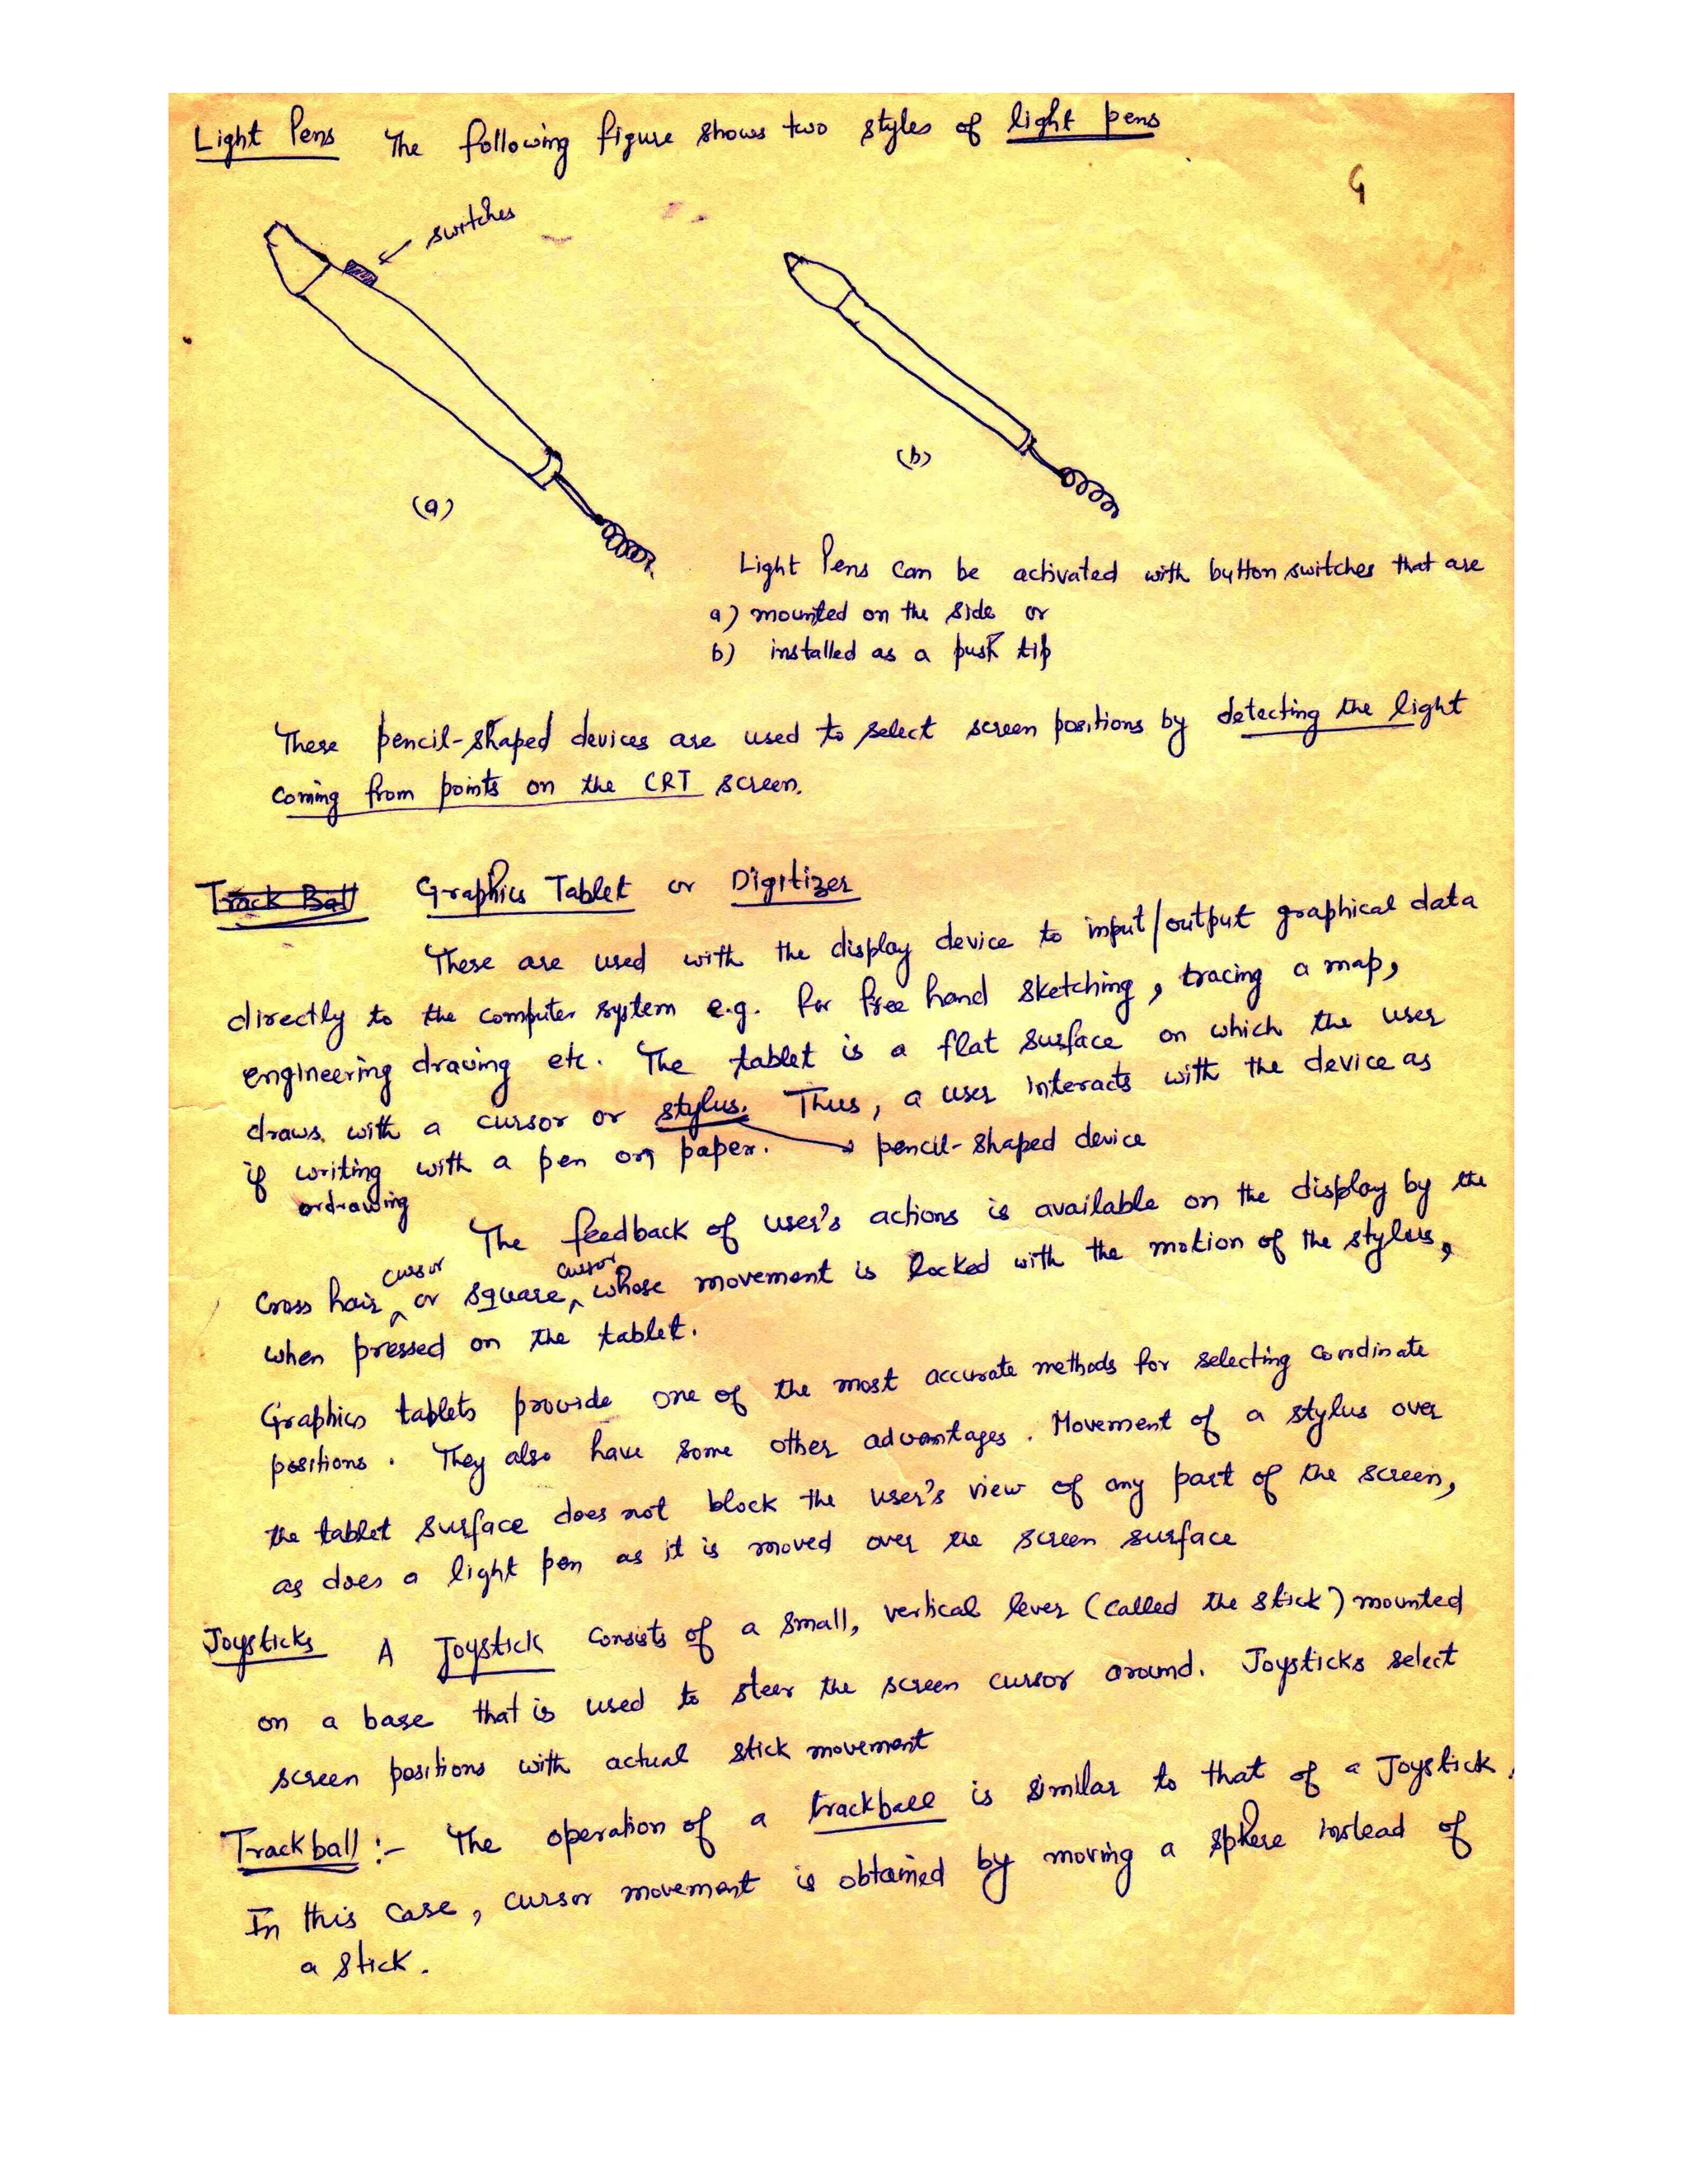 Light Pens The following figure shows two styles of light pens
switches
(a)
(b)
Light Pens can be activated with button switches that are
a) mounted on the side or
b) installed as a push tip
These pencil-shaped devices are used to select screen positions by detecting the light
coming from points on the CRT screen.
Track Ball Graphics Tablet or Digitizer
These are used with the display device to input/output graphical data
directly to the computer system e.g. for free hand sketching, tracing a map,
engineering drawing etc. The tablet is a flat surface on which the user
draws with a cursor or stylus. Thus, a user interacts with the device as
if writing with a pen on paper. → pencil-shaped device
or drawing
The feedback of user's actions is available on the display by the
cursor cursor
Cross hair ^ or square ^ whose movement is locked with the motion of the stylus,
when pressed on the tablet.
Graphics tablets provide one of the most accurate methods for selecting coordinate
positions. They also have some other advantages. Movement of a stylus over
the tablet surface does not block the user's view of any part of the screen,
as does a light pen as it is moved over the screen surface
Joysticks A Joystick consists of a small, vertical lever (called the stick) mounted
on a base that is used to steer the screen cursor around. Joysticks select
screen positions with actual stick movement
Trackball :- The operation of a trackball is similar to that of a Joystick.
In this case, cursor movement is obtained by moving a sphere instead of
a stick.